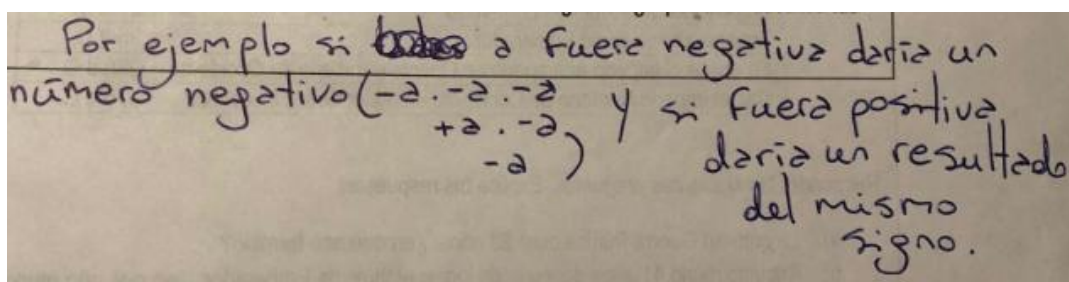 Por ejemplo si a fuera negativa daria un
número negativo (-a . -a . -a y si fuera positiva,
+a . -a daria un resultado
-a ) del mismo
signo.